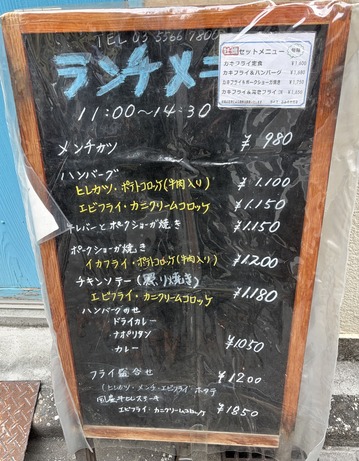 TEL 03 5566 7800
ランチメニ
牡蠣セットメニュー
カキフライ定食 ¥1,600
カキフライ&ハンバーグ ¥1,680
カキフライ&ポークショーガ焼き ¥1,750
11:00〜14:30
メンチカツ ¥980
ハンバーグ
ヒレカツ・ポテトコロッケ(牛肉入り) ¥1.100
エビフライ・カニクリームコロッケ ¥1.150
レバーとポークショーガ焼き ¥1.150
ポークショーガ焼き
イカフライ・ポテトコロッケ(牛肉入り) ¥1.200
チキンソテー(照り焼き)
エビフライ・カニクリームコロッケ ¥1.180
ハンバーグのせ
ドライカレー
ナポリタン
カレー ¥1050
フライ盛合せ ¥1200
(ヒレカツ・メンチ・エビフライ・ホタテ
国産牛ヒレステーキ
エビフライ・カニクリームコロッケ ¥1850